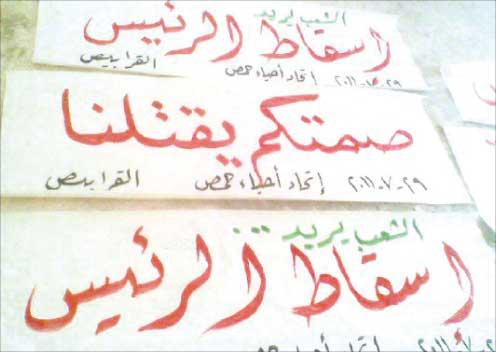 الشعب يريد
اسقاط الرئيس
٢٩-٧-٢٠١١ إتحاد أحياء حمص القرابيص
صمتكم يقتلنا
٢٩-٧-٢٠١١ إتحاد أحياء حمص القرابيص
الشعب يريد...
اسقاط الرئيس